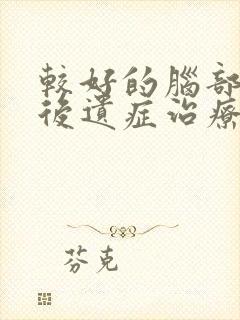 較好的腦部
後遺症治療
芬克